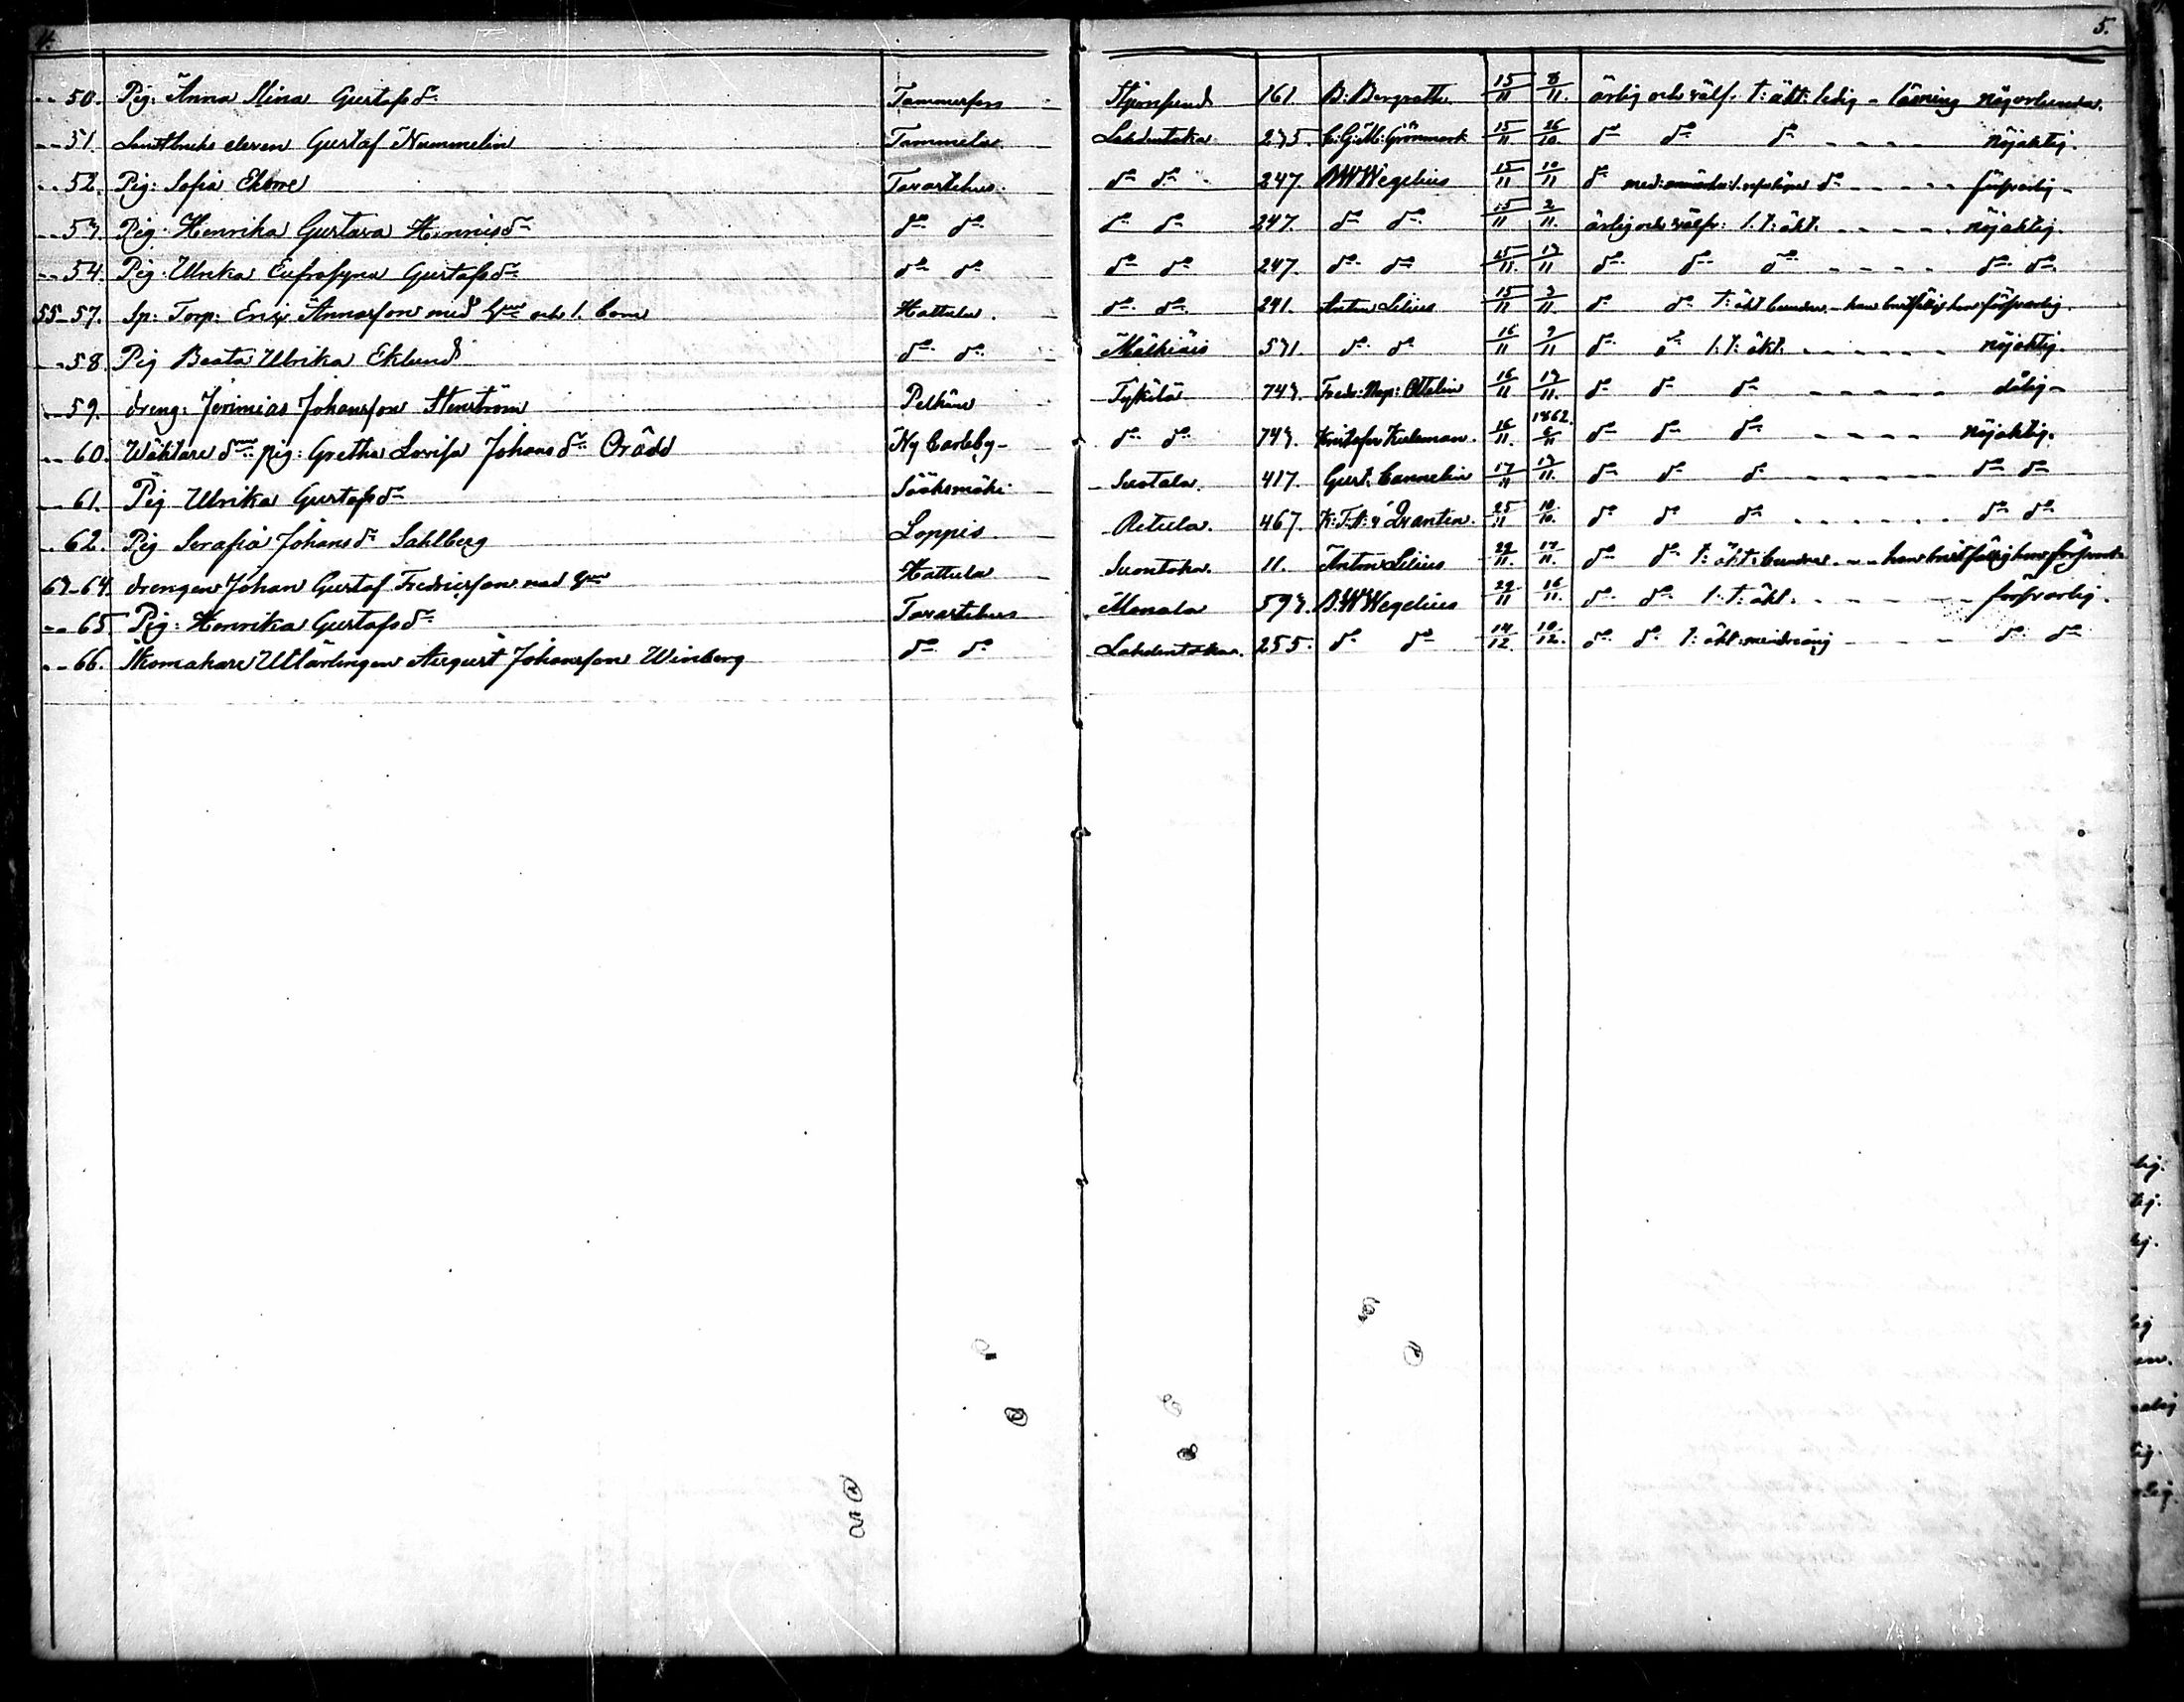 4. 5.
50. Pig. Anna Stina Gustafsdr Tammerfors 161. B: Bergroth 15/11 8/11. ärlig och välf. t: äkt: ledig - läsning någorlunda.
51. Landtbruks eleven Gustaf Nummelin Tammela Lahdentaka 275. Grönmark 15/11 26/10. do do do nöjaktig.
52. Pig: Sofia Tavastehus do do 247 BW Wegelius 15/11 10/11 do do försvarlig
53. Pig. Henrika Gustava Henricsdr do do do do 247. do do 15/11 2/11. ärlig och välfr: l. t: äkt. nöjaktig.
54. Pig. Ulrika Eufrosyna Gustafsdr do do do do 247. do do 15/11. 13/11 do do do do do.
55-57. Sp: Torp: Eric Annasson med och 1. barn Hattula. do do 241. Anton Lilius 15/11 3/11. do do t: äkt bunden. han bristfällig hon försvarlig.
58. Pig Beata Ulrika Eklund do do Mälkiäis 571. do do 16/11 9/11 do do l. t: äkt. nöjaktig.
59. dreng: Jeremias Johansson Stenström Pelkäne Tykölä 743. Fredr: Ottelin 16/11 13/11. do do do dålig
60. Wäktare pig: Gretha Lovisa Johansdr Orädd Ny Carleby do do 743. Kristofer 16/11. 1862. 6/11 do do do nöjaktig.
61. Pig Ulrika Gustafsdr Sääksmäki Suotala. 417. Gust. Cannelin 17/11 13/11. do do do do do
62. Pig Serafia Johansdr Sahlberg Loppis Retula. 467. 25/11 10/10. do do do do do
63-64 drengen Johan Gustaf Fredricsson med Hattula Suontaka. 11. Anton Lilius 29/11. 17/11. do do t: äkt: bunden han bristfällig hon försvarl.
65 Pig: Henrika Gustafsdr Tavastehus Monala 593. B.W Wegelius 29/11 16/11. do do l. t: äkt. försvarlig.
66. Skomakare Utlärlingen August Johansson Winberg do do Lahdentaka. 255. do do 14/12. 10/12. do do t: äkt: minderårig do do